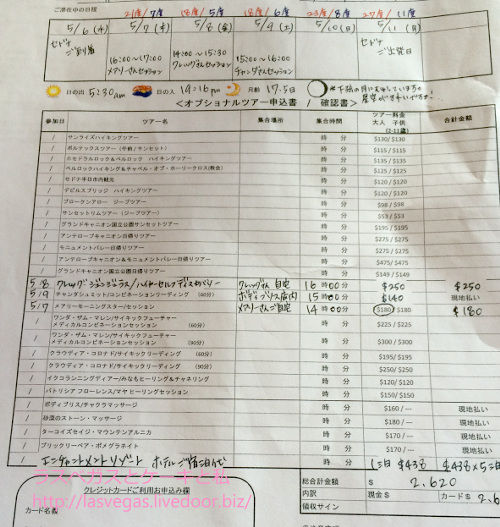 ご滞在中の日程
21度/7度 18度/5度 18度/6度 23度/8度 27度/11度
5/6(水) 5/7(木) 5/8(金) 5/9(土) 5/10(日) 5/11(月)
セドナ
ご到着
16:00~17:00
メアリーさんセッション
14:00~15:30
クレッグさんセッション
15:00~16:00
チャンダさんセッション
セドナ
ご出発日
日の出 5:30am 日の入 19:16pm 月齢 17.5日
<オプショナルツアー申込書 / 確認書>
参加日 ツアー名 集合場所 集合時間 ツアー料金 大人 子供 (2-11歳) 合計金額
/ サンライズハイキングツアー 時 分 $130/ $130
/ ボルテックスツアー(午前/サンセット) 時 分 $115/ $115
/ カセドラルロック&ベルロック ハイキングツアー 時 分 $135/ $135
/ ベルロックハイキング&チャペル・オブ・ホーリークロス(教会) 時 分 $135/ $135
/ セドナ半日市内観光 時 分 $125/ $125
/ デビルスブリッジ ハイキングツアー 時 分 $120/ $120
/ ブロークンアロー ジープツアー 時 分 $98 / $98
/ サンセットリムツアー(ジープツアー) 時 分 $53 / $53
/ グランドキャニオン国立公園サンセットツアー 時 分 $195 / $195
/ アンテロープキャニオン日帰りツアー 時 分 $275 / $275
/ モニュメントバレー日帰りツアー 時 分 $275 / $275
/ アンテロープキャニオン&モニュメントバレー日帰りツアー 時 分 $475/ $475
/ グランドキャニオン国立公園日帰りツアー 時 分 $149 / $149
5/8 クレッグ ジュンジュラス/ハイヤーセルフディスカバリー クレッグさん 自宅 16時00分 $250 $250
5/9 チャンダシュミット/コンビネーションリーディング (60分) ボディブリス店内 15時00分 $140 現地払い
5/7 メアリーモーニングスター/セッション メアリーさんご自宅 14時00分 $180 / $180 $180
/ ワンダ・ザム・マレン/サイキックフューチャー
メディカルコンビネーションセッション (60分) 時 分 $225 / $225
/ ワンダ・ザム・マレン/サイキックフューチャー
メディカルコンビネーションセッション (90分) 時 分 $300 / $300
/ クラウディア・コロナド/サイキックリーディング (60分) 時 分 $195/ $195
/ クラウディア・コロナド/サイキックリーディング (90分) 時 分 $250/ $250
/ イクコランニングディアー/みなもヒーリング&チャネリング 時 分 $120/ $120
/ パトリシア フローレンス/マヤ ヒーリングセッション 時 分 $150/ $150
/ ボディブリス/チャクラマッサージ 時 分 $160 / --- 現地払い
/ 砂漠のストーン・マッサージ 時 分 $180 / --- 現地払い
/ ターコイズセイジ・マウンテンアルニカ 時 分 $170 / --- 現地払い
/ ブリックリーペア・ポメグラネイト 時 分 $170 / --- 現地払い
/ エンチャントメントリゾート ホテルご宿泊代 時 分 1泊 $438 $438×5泊
ラスベガスとケーキと私
http://lasvegas.livedoor.biz/
クレジットカードご利用お申込み欄
カード名義
総合計金額 $ 2,620
内訳 現金 $ カード $ 2,6
領収サイン